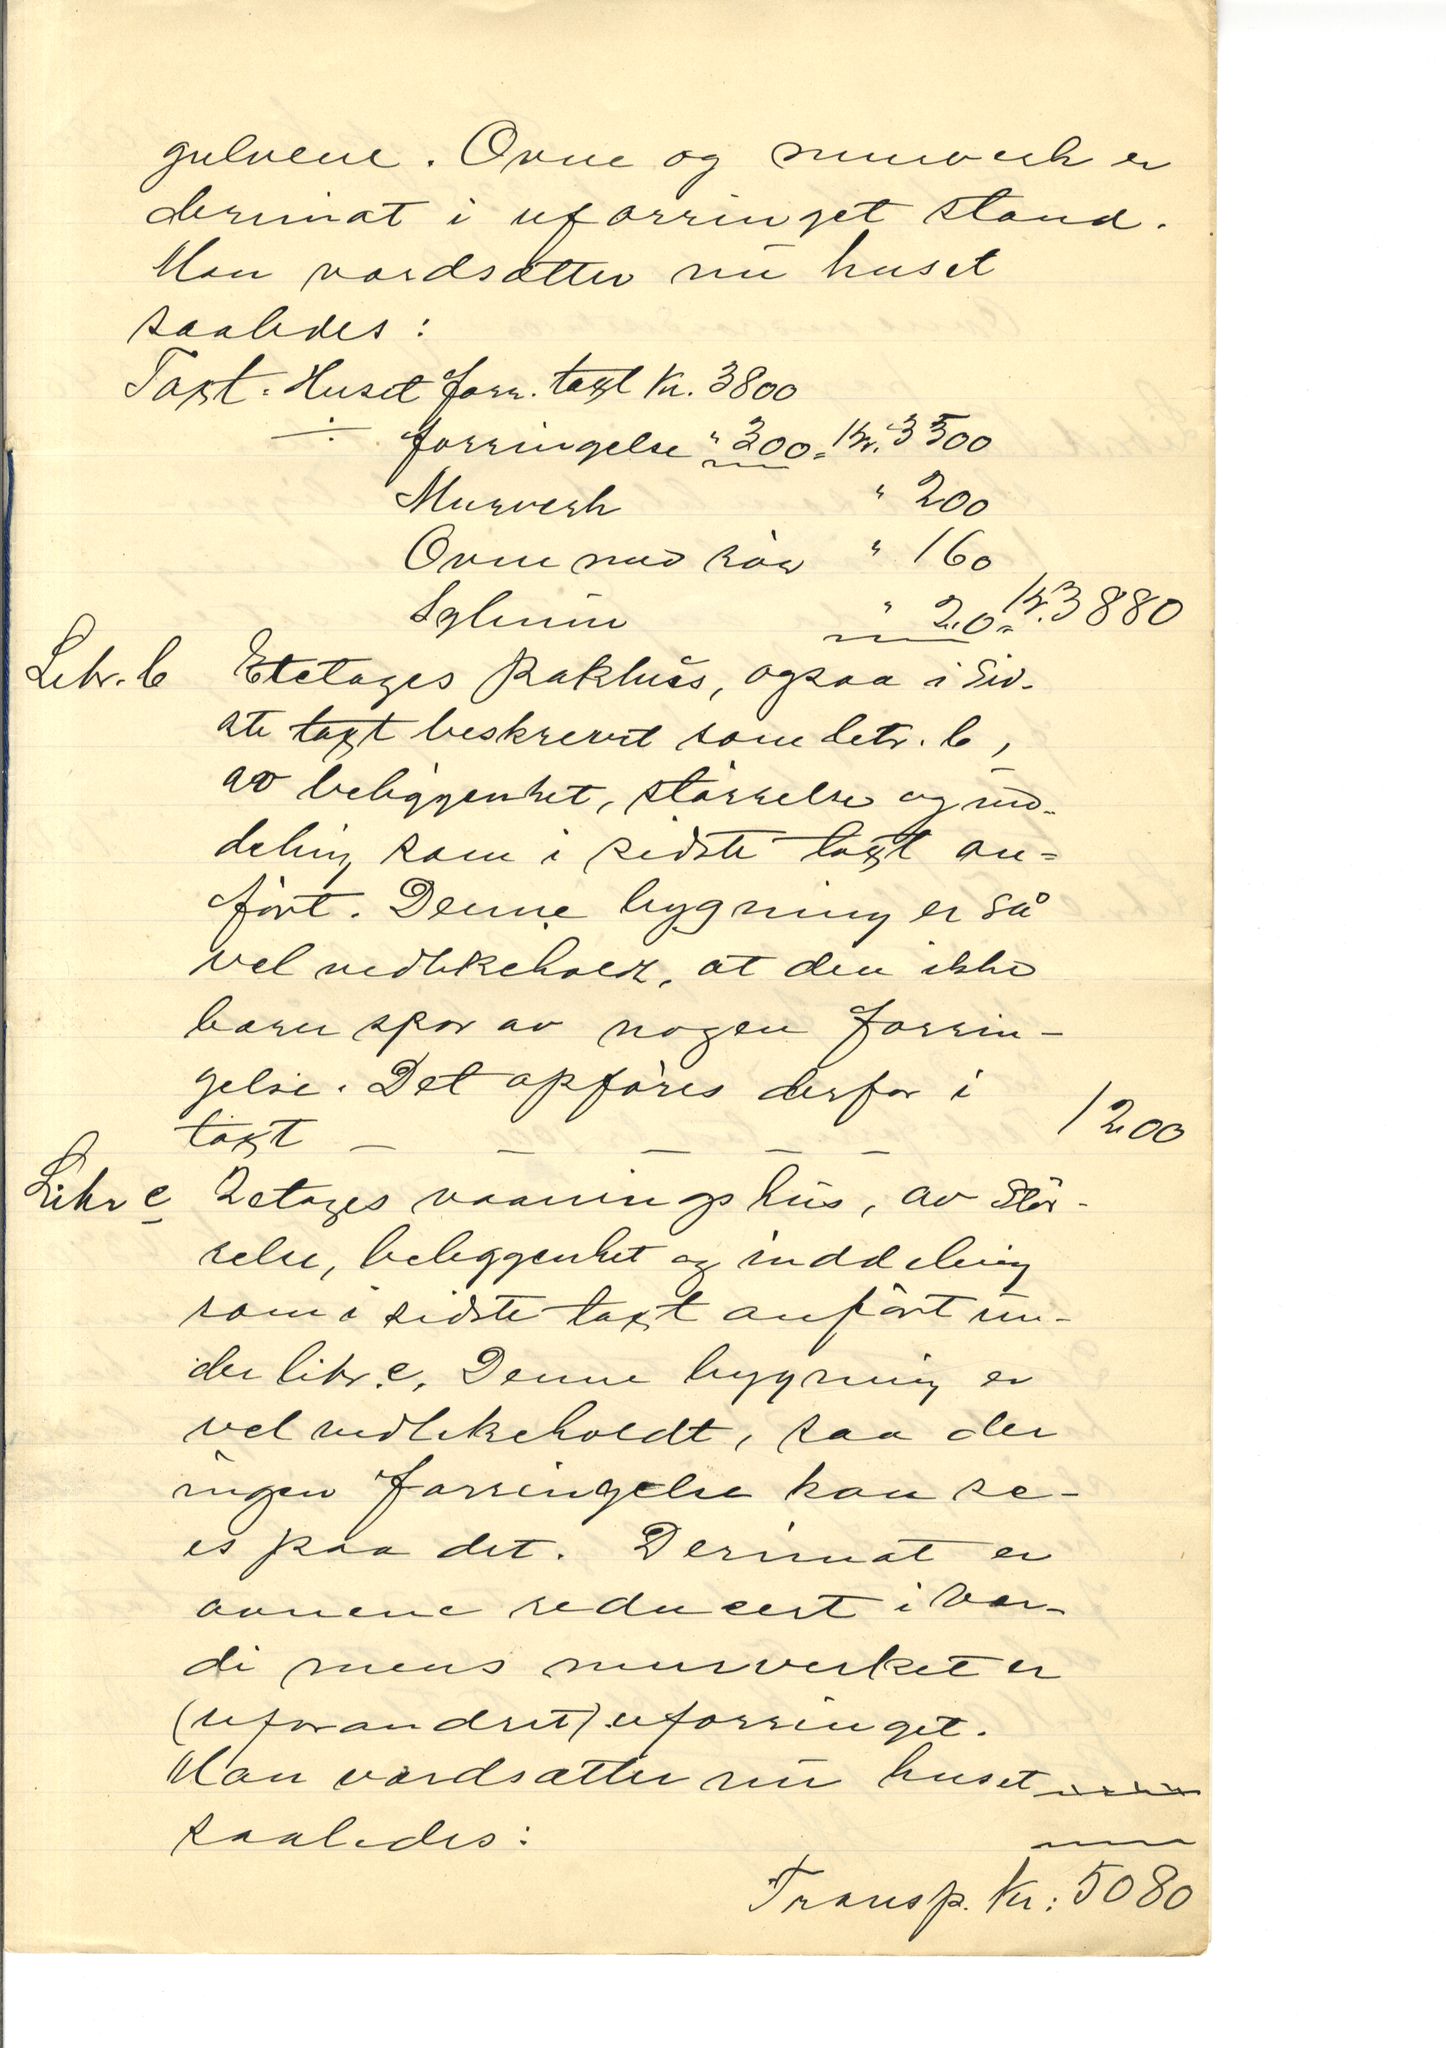 gulvene. Ovne og murverk er
derimot i uforringet stand.
Man værdsætter nu huset
saaledes:
Taxt. Huset forr. taxt Kr. 3800
÷ forringelse " 300 = Kr. 3500
Murverk " 200
Ovne med rör " 160
" 20 = Kr. 3880
Litr. b Etetages pakhus, ogsaa i sid-
ste taxt beskrevet som letr. b,
av beliggenhet, störrelse og ind-
deling som i sidste taxt an-
fört. Denne bygning er så
vel vedlikeholdt, at den ikke
bærer spor av nogen forrin-
gelse. Det opföres derfor i
taxt — — — — — 1200
Litr c 2etages vaaningshus, av stör-
relse, beliggenhet og inddeling
som i sidste taxt anfört un-
der litr. c. Denne bygning er
vel vedlikeholdt, saa der
ingen forringelse kan se-
es paa det. Derimot er
ovnene reducert i vær-
di mens murverket er
(uforandret) uforringet.
Man værdsætter nu huset
saaledes:
Transp. Kr: 5080